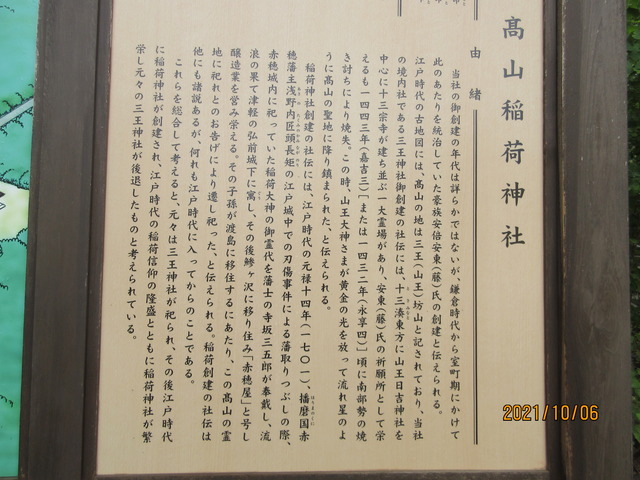 髙山稲荷神社
由緒
当社の御創建の年代は詳らかではないが、鎌倉時代から室町期にかけて
此のあたりを統治していた豪族安倍安東(藤)氏の創建と伝えられる。
江戸時代の古地図には、髙山の地は三王(山王)坊山と記されており、当社
の境内社である三王神社御創建の社伝には、十三湊東方に山王日吉神社を
中心に十三宗寺が建ち並ぶ一大霊場があり、安東(藤)氏の祈願所として栄
えるも一四四三年(嘉吉三)[または一四三二年(永享四)]頃に南部勢の焼
き討ちにより焼失。この時、山王大神さまが黄金の光を放って流れ星のよ
うに髙山の聖地に降り鎮まられた、と伝えられる。
稲荷神社創建の社伝には、江戸時代の元禄十四年(一七〇一)、播磨国赤
穂藩主浅野内匠頭長矩の江戸城中での刃傷事件による藩取りつぶしの際、
赤穂城内に祀っていた稲荷大神の御霊代を藩士の寺坂三五郎が奉戴し、流
浪の果て津軽の弘前城下に寓し、その後鯵ヶ沢に移り住み「赤穂屋」と号し
醸造業を営み栄える。その子孫が渡島に移住するにあたり、この髙山の霊
地に祀れとのお告げにより遷し祀った、と伝えられる。稲荷創建の社伝は
他にも諸説あるが、何れも江戸時代に入ってからのことである。
これらを総合して考えると、元々は三王神社が祀られ、その後江戸時代
に稲荷神社が創建され、江戸時代の稲荷信仰の隆盛とともに稲荷神社が繁
栄し元々の三王神社が後退したものと考えられている。
2021/10/06